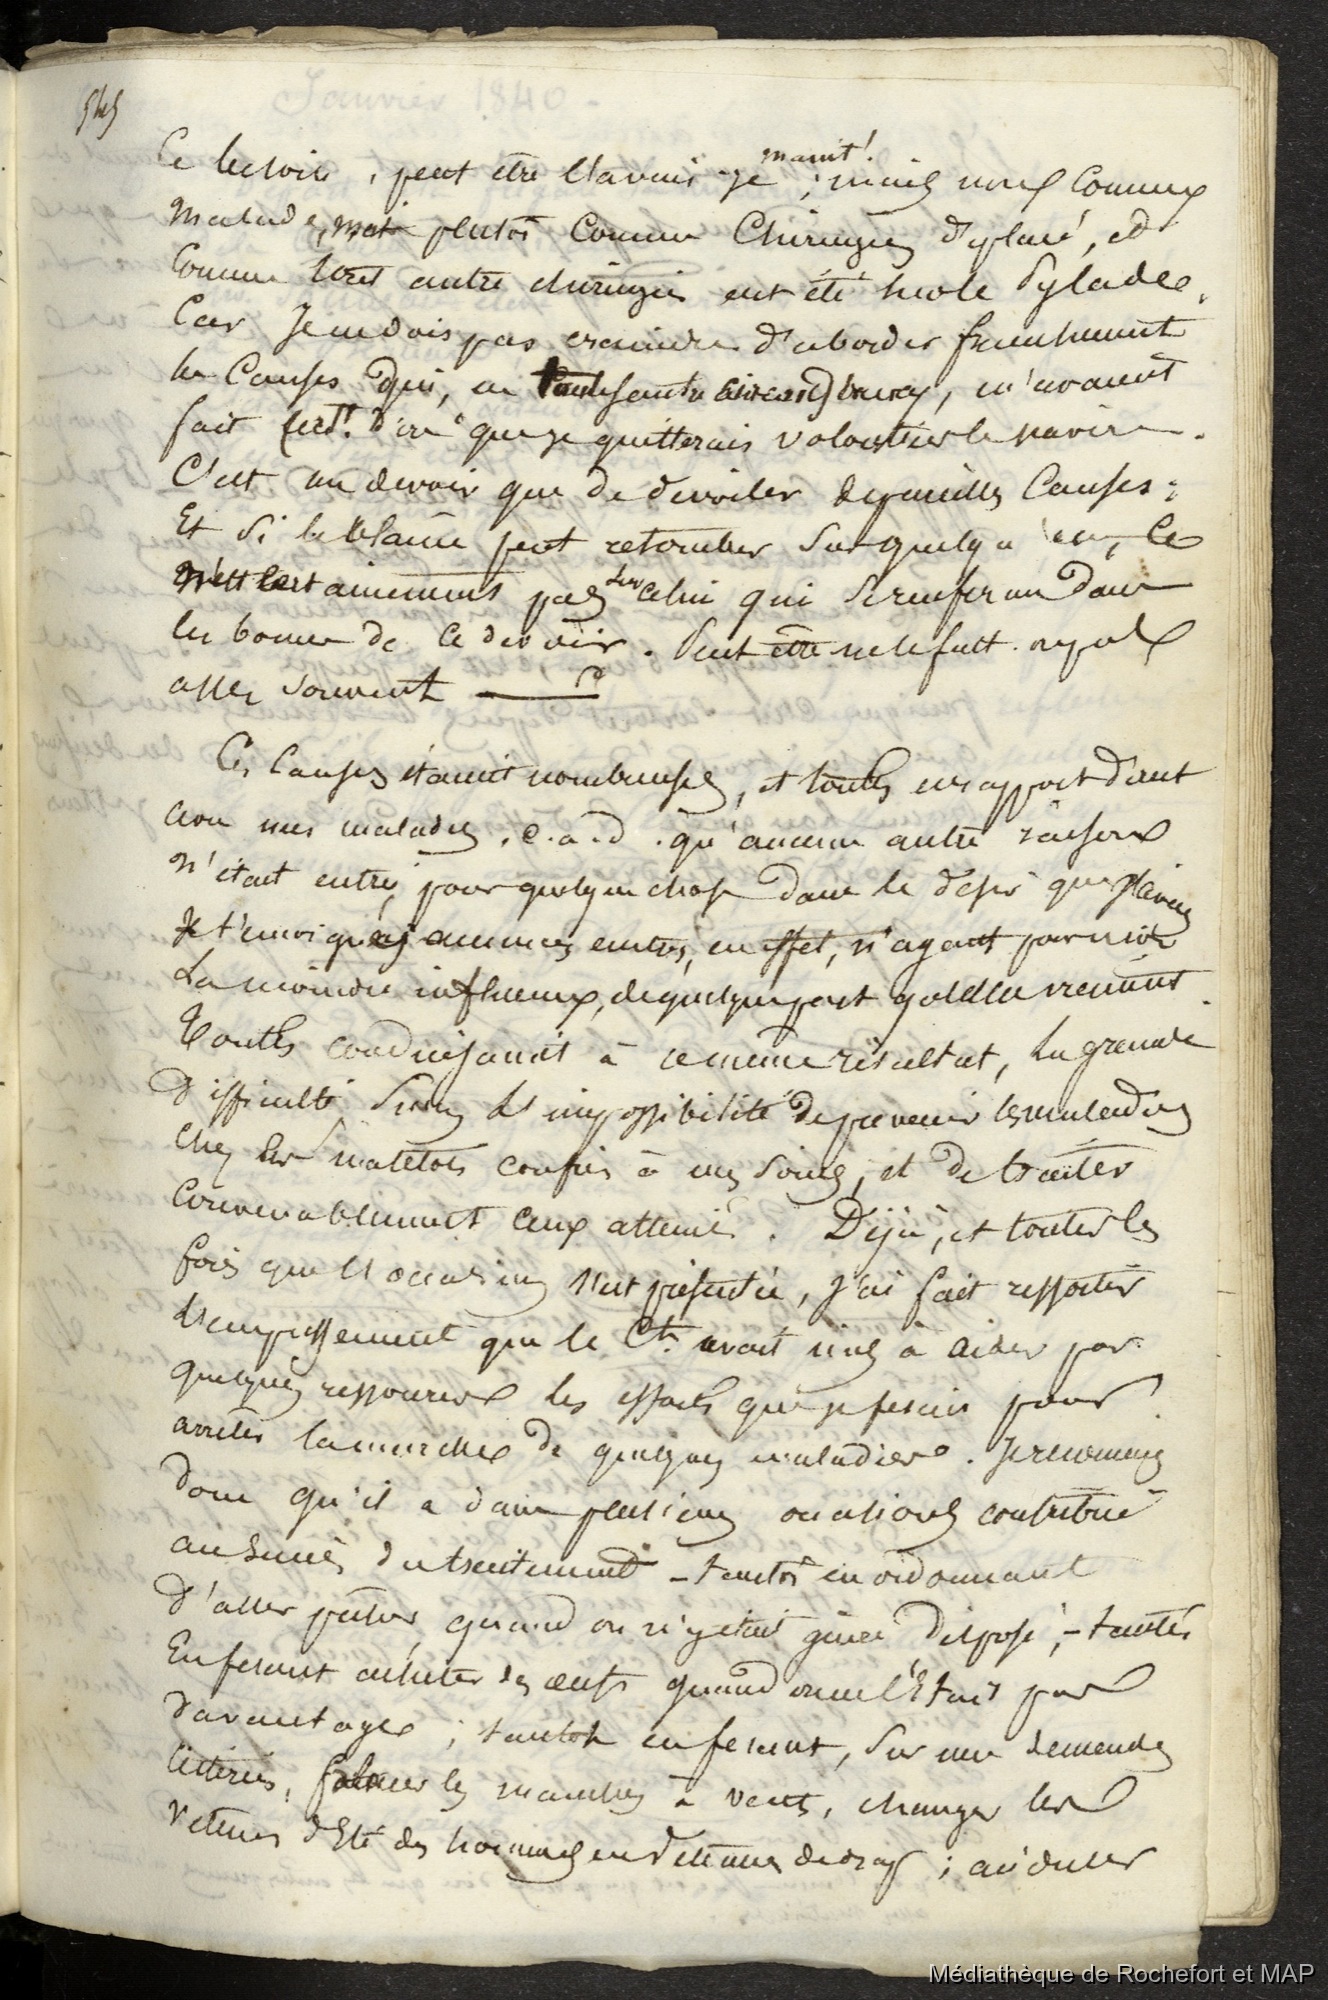 Janvier 1840.
545
Ce besoin, peut être l'avais-je manit! ; mais non comme
malade, mais plutôt comme Chirurgien déplacé, et
Comme tout autre chirurgien eut été sur le Pylade.
Car Je ne dois pas craindre d'aborder franchement
les Causes qui, en m'avaient
fait dire que je quitterais volontier le navire.
C'est un devoir que de dévoiler de pareilles Causes;
Et Si le blâme peut retomber Sur quelqu'un, ce
n'est certainement pas sur celui qui se renferme dans
les bornes de ce devoir. Peut être ne le fait-on pas
assez Souvent
Ces Causes étaient nombreuses, et toutes en rapport direct
avec mes malades, c.a.d. qu'aucune autre raison
n'était entrée pour quelque chose dans le désir que j'avais
en effet, n'ayant pour moi
La moindre influence, de quelque part qu'elles vennent.
Toutes conduisaient à ce même résultat, La grande
Difficulté Sinon l'impossibilité de prévenir les maladies
Chez les matelots confiés à mes soins, et de traiter
Convenablement ceux atteints. Déjà, et toutes les
fois que l'occasion s'est présentée, j'ai fait ressortir
L'empressement que le Ct. avait mis à aider par
quelques ressources les efforts que je fesais pour
arrêter la marche de quelques maladies. Je reconnais
Donc qu'il a dans plusieurs occasions contribué
au Succès du traitement - tantôt en ordonnant
D'aller pêcher quand on n'y était guère disposé, - tantôt
En fesant acheter des oeufs quand on ne l'était pas
Davantage ; tantôt en fesant, sur ma demande
réitérée, placer les manches à vent, changer les
vetemens d'Eté des hommes en vetemens de drap ; aciduler
Médiathèque de Rochefort et MAP